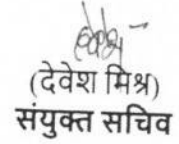 (देवेश मिश्र)
संयुक्त सचिव